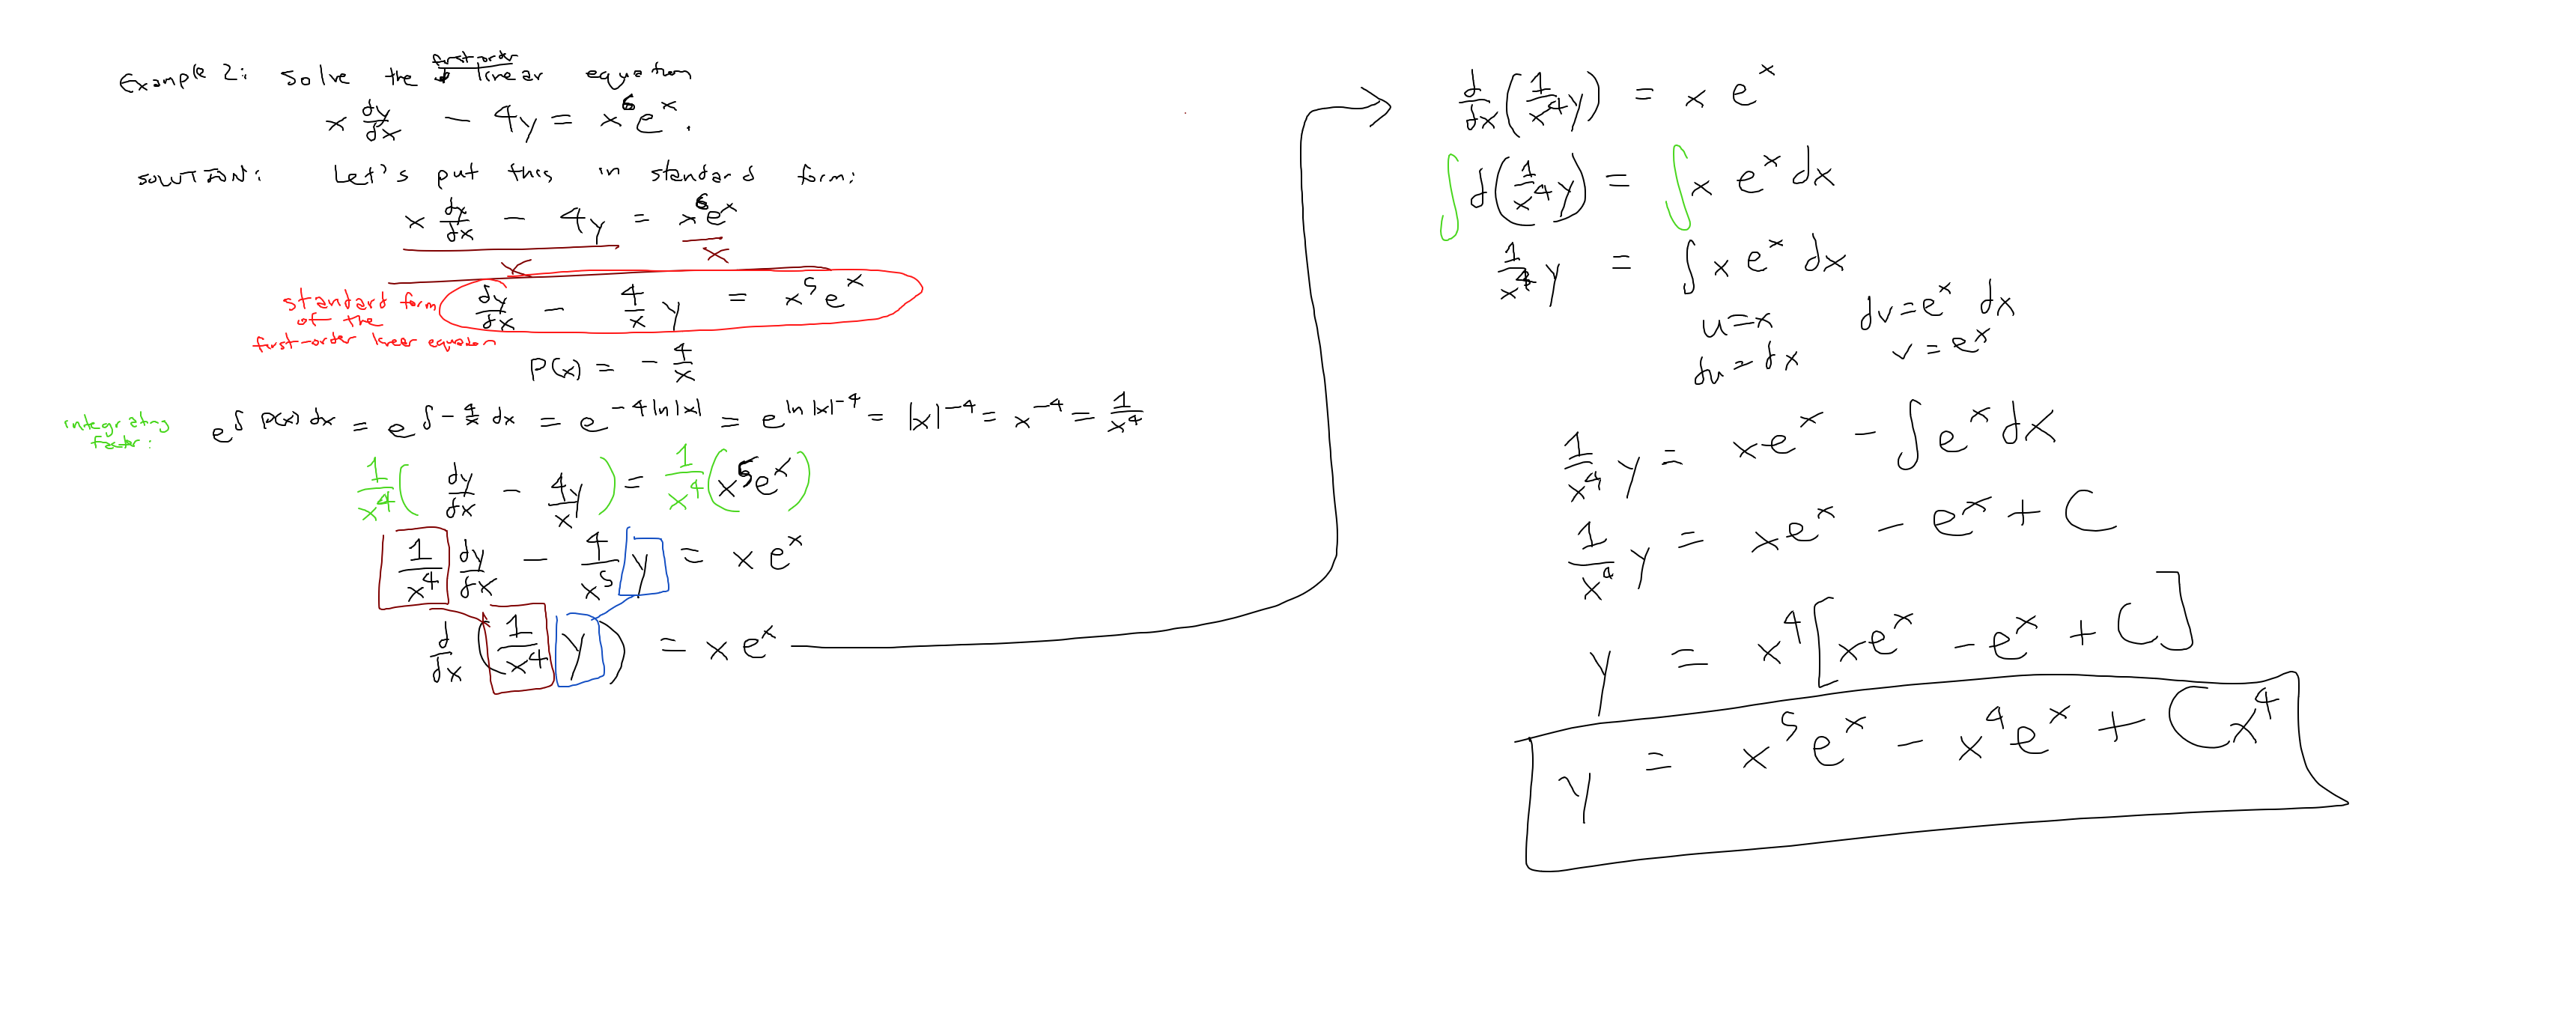 Example 2: Solve the first-order linear equation
x dy/dx - 4y = x^6 e^x.
SOLUTION: Let's put this in standard form:
x dy/dx - 4y = x^6 e^x
x x
dy/dx - 4/x y = x^5 e^x
standard form
of the
first-order linear equation
P(x) = - 4/x
integrating
factor:
e^∫ P(x) dx = e^∫ - 4/x dx = e^-4 ln|x| = e^ln|x|^-4 = |x|^-4 = x^-4 = 1/x^4
1/x^4 ( dy/dx - 4y/x ) = 1/x^4 (x^5 e^x)
1/x^4 dy/dx - 4/x^5 y = x e^x
d/dx (1/x^4 y) = x e^x
d/dx (1/x^4 y) = x e^x
∫ d(1/x^4 y) = ∫ x e^x dx
1/x^4 y = ∫ x e^x dx
u = x dv = e^x dx
du = dx v = e^x
1/x^4 y = x e^x - ∫ e^x dx
1/x^4 y = x e^x - e^x + C
y = x^4 [x e^x - e^x + C]
y = x^5 e^x - x^4 e^x + C x^4